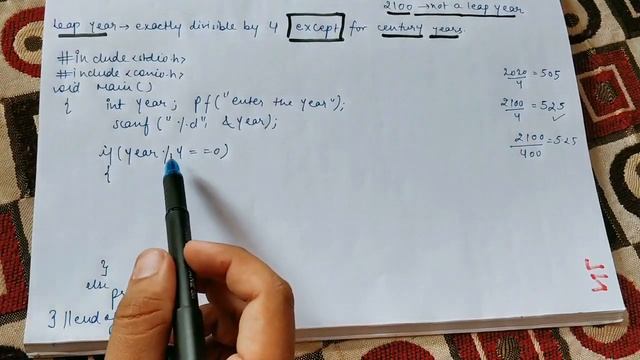 2100 → not a leap year
Leap year → exactly divisible by 4 except for century years.
#include <stdio.h>
#include <conio.h>
void main()
{ int year; pf("enter the year");
scanf("%d", &year);
if (year % 4 == 0)
{
}
else
} //end
2020/4 = 505
2100/4 = 525
2100/400 = 525